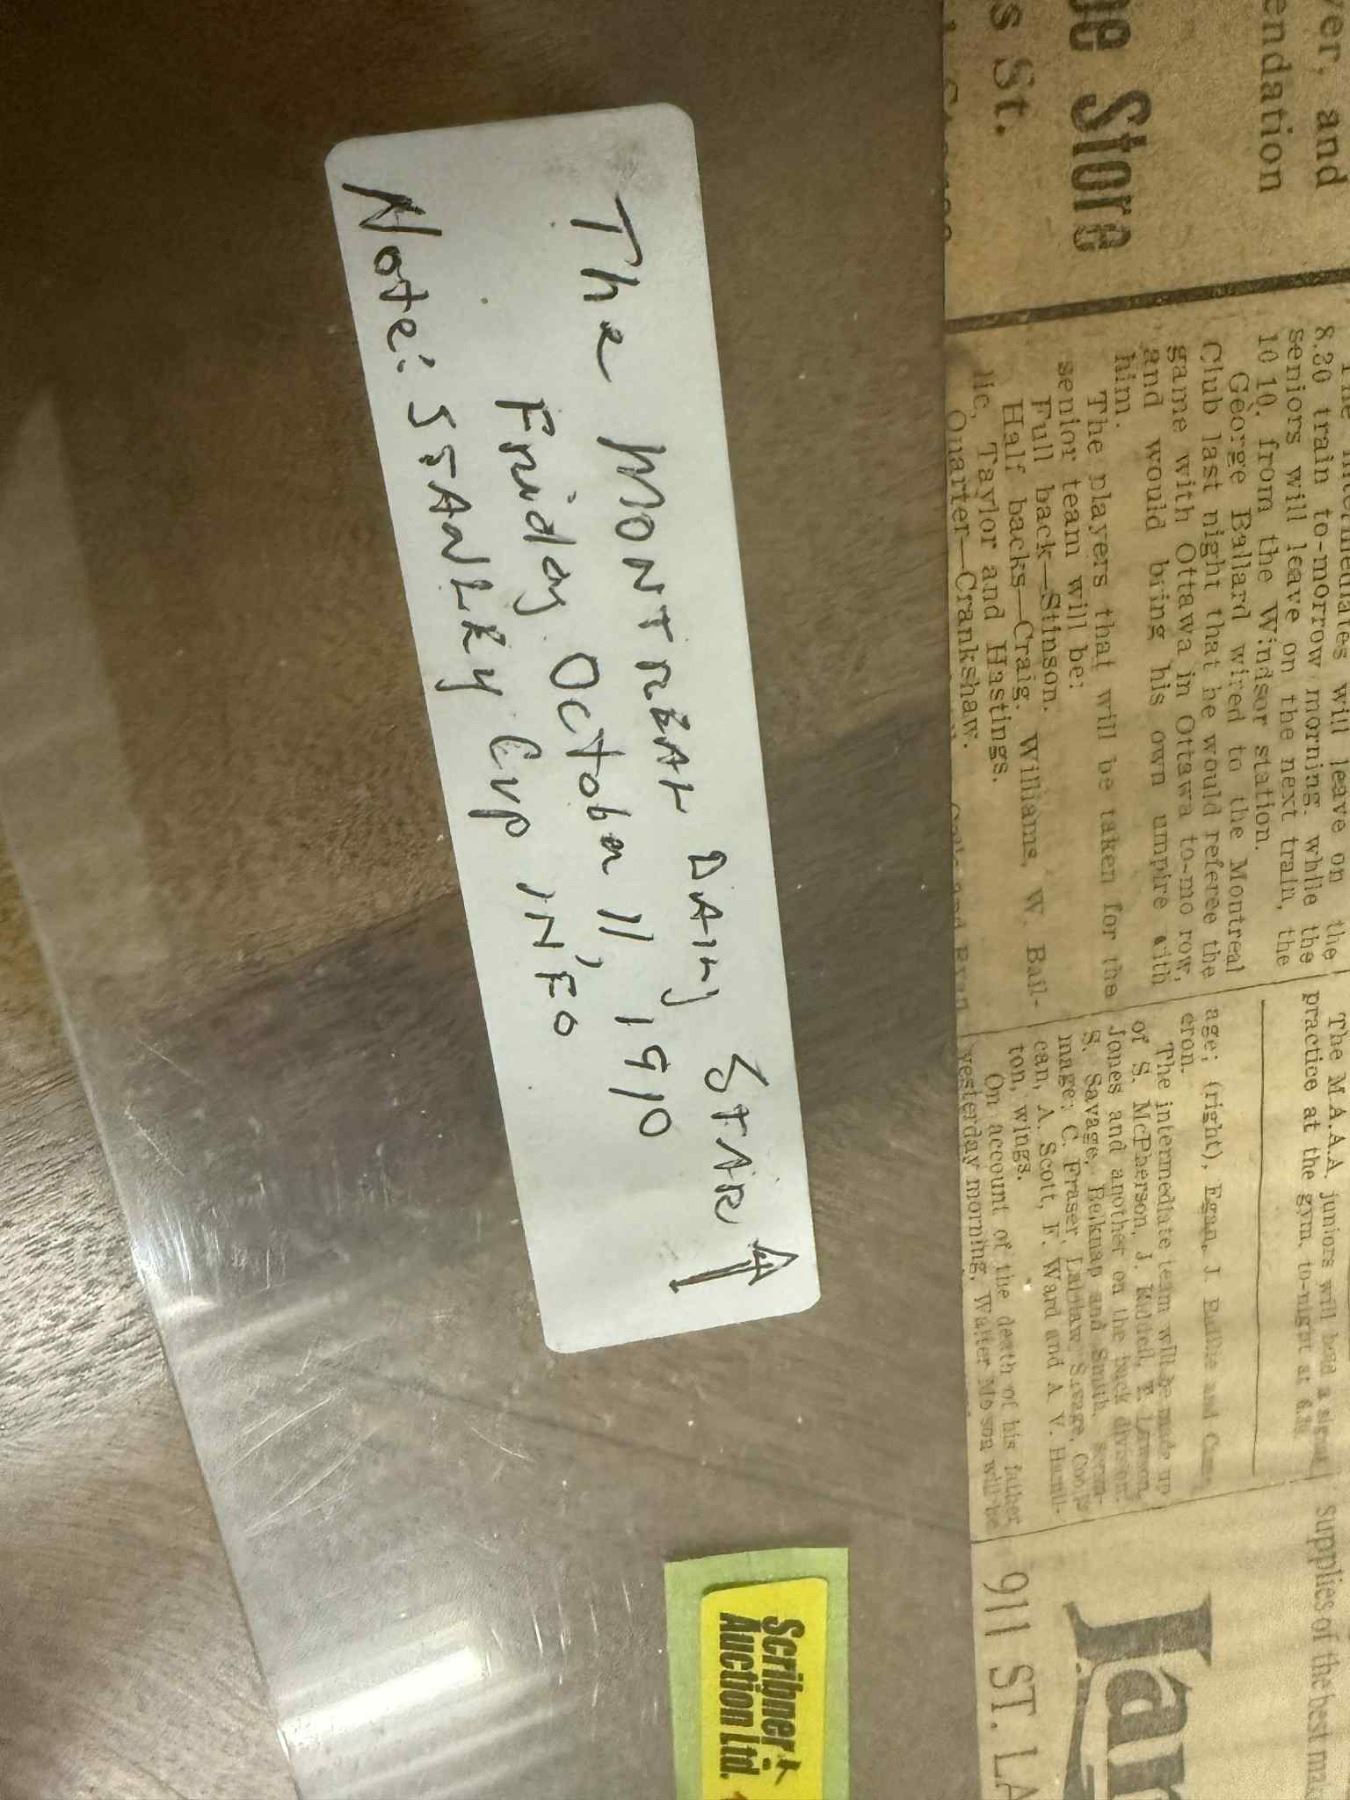 The MONTREAL DAILY STAR ↑
Friday October 11, 1910
Note: STANLEY CUP INFO
Scribner
Auction Ltd.
ne Store
s St.
ver, and
endation
8.30 train to-morrow morning, while the
seniors will leave on the next train, the
10 10, from the Windsor station.
George Ballard wired to the Montreal
Club last night that he would referee the
game with Ottawa in Ottawa to-mo row,
and would bring his own umpire with
him.
The players that will be taken for the
senior team will be:
Full back—Stinson.
Half backs—Craig, Williams, W. Bail-
lie, Taylor and Hastings.
Quarter—Crankshaw.
The M.A.A.A. juniors will hold a
practice at the gym. to-night at
age; (right), Egan, J. Baillie and Cam-
eron.
The intermediate team will be made up
of S. McPherson, J.
Jones and another on the back division.
S. Savage, Belknap and Smith,
mage; C. Fraser, Laidlaw, Savage,
can, A. Scott, F. Ward and A. V. Hamil-
ton, wings.
On account of the death of his father
yesterday morning, Walter Molson will be
Supplies of the best
911 ST. LA